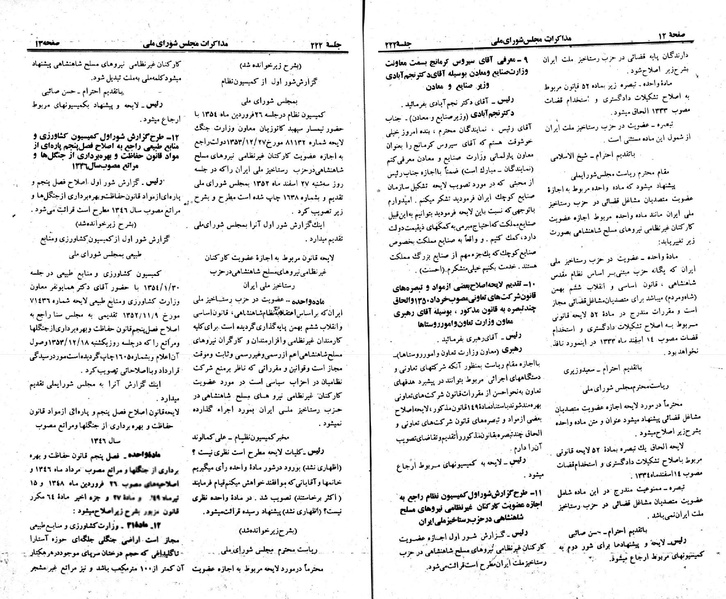 صفحهٔ ۱۲
مذاکرات مجلس شورای ملی
جلسهٔ ۲۲۲
دارندگان پایه قضائی در حزب رستاخیز ملت ایران
بشرح زیر اصلاح شود.
ماده واحده - تبصره زیر بماده ۵۲ قانون مربوط
به اصلاح تشکیلات دادگستری و استخدام قضات
مصوب ۱۳۳۳ الحاق میشود.
تبصره - عضویت در حزب رستاخیز ملت ایران
از شمول این ماده مستثنی است.
باتقدیم احترام - شیخ الاسلامی
مقام محترم ریاست مجلس شورای ملی
پیشنهاد میشود که ماده واحده مربوط به اجازه
عضویت متصدیان مشاغل قضائی در حزب رستاخیز
ملی ایران مانند ماده واحده مربوط به اجازه عضویت
کارکنان غیرنظامی نیروهای مسلح شاهنشاهی بصورت
زیر تغییر یابد:
ماده واحده - عضویت در حزب رستاخیز ملی
ایران که یگانه حزب مبتنی بر اساس نظام مقدس
شاهنشاهی، قانون اساسی و انقلاب ششم بهمن
(شاه و مردم) میباشد برای متصدیان مشاغل قضائی مجاز
است و مقررات مندرج در ماده ۵۲ لایحه قانونی
مربوط به اصلاح تشکیلات دادگستری و استخدام
قضات مصوب ۱۴ اسفند ماه ۱۳۳۳ در اینمورد نافذ
نخواهد بود.
باتقدیم احترام - صیدوزیری
ریاست محترم مجلس شورای ملی
محترماً در مورد لایحه اجازه عضویت متصدیان
مشاغل قضائی پیشنهاد میشود عنوان و متن ماده واحده
بشرح زیر اصلاح میشود.
لایحه الحاق یک تبصره بماده ۵۲ لایحه قانونی
مربوط باصلاح تشکیلات دادگستری و استخدام قضات
مصوب ۱۴ اسفندماه ۱۳۳۳
تبصره - ممنوعیت مندرج در این ماده شامل
عضویت متصدیان مشاغل قضائی در حزب رستاخیز
ملت ایران نمی‌باشد.
باتقدیم احترام - حسن صائبی
رئیس - لایحه و پیشنهادها برای شور دوم به
کمیسیونهای مربوط ارجاع میشود.
۹ - معرفی آقای سیروس کرمانج بسمت معاونت
وزارت صنایع و معادن بوسیله آقای دکتر نجم‌آبادی
وزیر صنایع و معادن
رئیس - آقای دکتر نجم‌آبادی بفرمائید.
دکتر نجم‌آبادی (وزیر صنایع و معادن) - جناب
آقای رئیس، نمایندگان محترم، بنده امروز خیلی
خوشوقت هستم که آقای سیروس کرمانج را بعنوان
معاون پارلمانی وزارت صنایع و معادن معرفی کنم
(نمایندگان - مبارک است) ضمناً با اجازه جناب رئیس
از محبتی که در مورد تصویب لایحه تشکیل سازمان
صنایع کوچک ایران فرمودید تشکر میکنم. امیدوارم
باتوجهی که نسبت باین لایحه فرمودید بتوانیم به این قبیل
صنایع کوچک که احتیاج مبرمی به کمکهای ذیقیمت دولت
دارد، کمک کنیم. و واقعاً به صنایع مملکت بخصوص
صنایع کوچک که یک جزء مهم از صنایع بزرگ مملکت
هستند. خدمت بکنیم خیلی متشکرم. (احسنت).
۱۰ - تقدیم لایحه اصلاح بعضی از مواد و تبصره‌های
قانون شرکت‌های تعاونی مصوب خرداد ۱۳۵۰ و الحاق
چند تبصره به قانون مذکور، بوسیله آقای رهبری
معاون وزارت تعاون و امور روستاها
رئیس - آقای رهبری بفرمائید.
رهبری (معاون وزارت تعاون و امور روستاها) -
با اجازه مقام ریاست بمنظور آنکه شرکتهای تعاونی و
دستگاههای اجرائی مربوط بتوانند در پیشبرد هدفهای
تعاون به نحو احسن از مقررات قانون شرکت‌های تعاونی
بهره‌مند شوند
بعضی از مواد و تبصره‌های قانون شرکت‌های تعاونی و
الحاق چند تبصره به قانون مذکور را تقدیم و تقاضای تصویب
آنرا دارم.
رئیس - لایحه به کمیسیونهای مربوط ارجاع
میشود.
۱۱ - طرح گزارش شور اول کمیسیون نظام راجع به
اجازه عضویت کارکنان غیرنظامی نیروهای مسلح
شاهنشاهی در حزب رستاخیز ملی ایران
رئیس - گزارش شور اول اجازه عضویت
کارکنان غیرنظامی نیروهای مسلح شاهنشاهی در حزب
رستاخیز ملی ایران مطرح است قرائت میشود.
جلسه ۲۲۲
مذاکرات مجلس شورای ملی
صفحه ۱۳
(بشرح زیر خوانده شد)
گزارش شور اول از کمیسیون نظام
بمجلس شورای ملی
کمیسیون نظام در جلسه ۲۶ فروردین ماه ۱۳۵۴ با
حضور تیمسار سپهبد کاتوزیان معاون وزارت جنگ
لایحه شماره ۸۱۱۳۲-۱۳۵۳/۱۲/۲۷ دولت راجع
به اجازه عضویت کارکنان غیرنظامی نیروهای مسلح
شاهنشاهی در حزب رستاخیز ملی ایران را که در جلسه
سه‌شنبه ۲۷ اسفند ماه ۱۳۵۳ به مجلس شورای ملی
تقدیم و بشماره ۱۶۳۸ چاپ شده است مطرح و بشرح
زیر تصویب کرد.
اینک گزارش شور اول آنرا بمجلس شورای ملی
تقدیم میدارد.
لایحه قانون مربوط به اجازه عضویت کارکنان
غیرنظامی نیروهای مسلح شاهنشاهی در حزب
رستاخیز ملی ایران
ماده واحده - عضویت در حزب رستاخیز ملی
ایران که بر اساس اعتقاد به نظام شاهنشاهی، قانون اساسی
و انقلاب ششم بهمن پایه‌گذاری گردیده است برای کلیه
کارمندان غیر نظامی و افزارمندان و کارگران نیروهای
مسلح شاهنشاهی اعم از رسمی و غیر رسمی و ثابت و موقت
مجاز است و قوانین و مقرراتی که ناظر بر منع شرکت
نظامیان در احزاب سیاسی است در مورد عضویت
کارکنان غیرنظامی نیروهای مسلح شاهنشاهی در
حزب رستاخیز ملی ایران بمورد اجراء گذارده
نمیشود.
مخبر کمیسیون نظام - علی کمالوند
رئیس - کلیات لایحه مطرح است نظری نیست؟
(اظهاری نشد) بورود در شور ماده واحده رأی میگیریم
خانمها و آقایانی که موافقند خواهش میکنم قیام فرمایند
(اکثر برخاستند) تصویب شد. در ماده واحده نظری
نیست؟ (اظهاری نشد) پیشنهاد رسیده قرائت میشود.
(بشرح زیر خوانده شد)
ریاست محترم مجلس شورای ملی
محترماً در مورد لایحه مربوط به اجازه عضویت
کارکنان غیرنظامی نیروهای مسلح شاهنشاهی پیشنهاد
میشود کلمه ملی به ملت تبدیل شود.
باتقدیم احترام - حسن صائبی
رئیس - لایحه و پیشنهاد بکمیسیونهای مربوط
ارجاع میشود.
۱۲ - طرح گزارش شور اول کمیسیون کشاورزی و
منابع طبیعی راجع به اصلاح فصل پنجم پاره‌ای از
مواد قانون حفاظت و بهره‌برداری از جنگل‌ها و
مراتع مصوب سال ۱۳۴۶
رئیس - گزارش شور اول اصلاح فصل پنجم و
پاره‌ای از مواد قانون حفاظت و بهره‌برداری از جنگل‌ها و
مراتع مصوب سال ۱۳۴۶ مطرح است قرائت می شود.
(بشرح زیر خوانده شد)
گزارش شور اول از کمیسیون کشاورزی و منابع
طبیعی بمجلس شورای ملی
کمیسیون کشاورزی و منابع طبیعی در جلسه
۱۳۵۴/۱/۳۰ با حضور آقای دکتر همایونفر معاون
وزارت کشاورزی و منابع طبیعی لایحه شماره ۷۱۴۳۶
مورخ ۱۳۵۳/۱۱/۹ مصوب مجلس سنا راجع به
اصلاح فصل پنجم قانون حفاظت و بهره‌برداری از جنگلها
و مراتع را که در جلسه روز یکشنبه ۱۳۵۳/۱۲/۱۸ وصول
آن اعلام و بشماره ۱۶۰۰ چاپ گردیده است مورد رسیدگی
قرار داد و با اصلاحاتی تصویب کرد.
اینک گزارش آنرا به مجلس شورای ملی تقدیم
میدارد.
لایحه قانون اصلاح فصل پنجم و پاره‌ای از مواد قانون
حفاظت و بهره‌برداری از جنگلها و مراتع مصوب
سال ۱۳۴۶
ماده واحده - فصل پنجم قانون حفاظت و بهره
برداری از جنگلها و مراتع مصوب مرداد ماه ۱۳۴۶ و
اصلاحیه‌های مصوب ۲۶ فروردین ماه ۱۳۴۸ و ۱۵
تیرماه ۱۳۴۹ و ماده ۲۷ و جزء اخیر ماده ۶۴ مکرر
قانون مزبور بشرح زیر اصلاح میشود:
۱۳ - ماده ۳۱ - وزارت کشاورزی و منابع طبیعی
مجاز است اراضی جنگلی جلگه‌ای حوزه آستارا
تا گلیداغی که حجم درختان سرپای موجود در هر هکتار
آن کمتر از ۱۰۰ مترمکعب باشد و نیز مراتع غیر مشجر